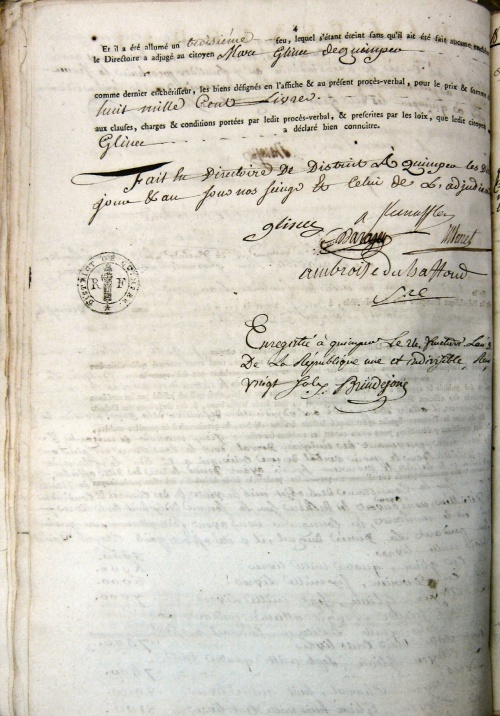 4
Et il a été allumé un troisième feu, lequel s'étant éteint sans qu'il ait été fait aucune
le Directoire a adjugé au citoyen Marc Glinec de quimper
comme dernier enchérisseur, les biens désignés en l'affiche & au présent procès-verbal, pour le prix & somme
huit mille Cent Livres.
aux clauses, charges & conditions portées par ledit procès-verbal, & prescrites par les loix, que ledit citoyen
Glinec a déclaré bien connoître.
Fait En Directoire De District A quimper les Dits
jour & an sous nos seings & Celui de L'adjudi
glinec
ambroise du haffond
Sre
DISTRICT DE QUIMPER
R F
Enregistré à quimper Le 24 fructidor L'an
De La République une et indivisible, Reçu
vingt sols Brindejonc